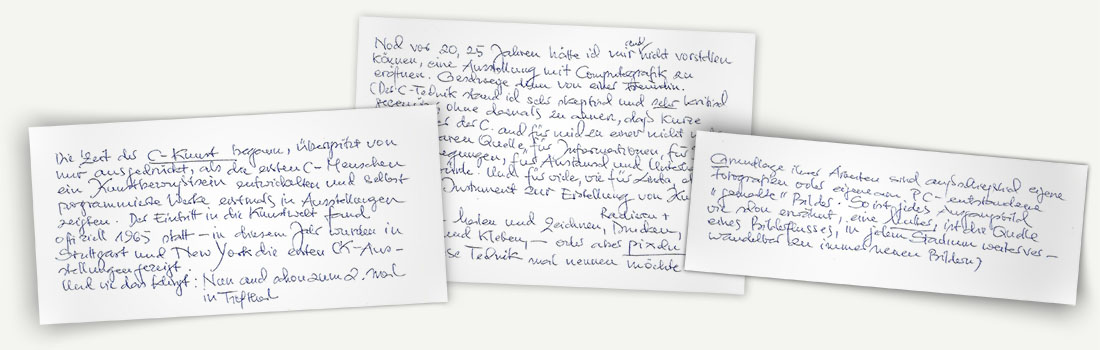 Die Zeit der C-Kunst begann, überspitzt von
mir ausgedrückt, als die ersten C-Menschen
ein Kunstbewusstsein entwickelten und selbst
programmierte Werke erstmals in Ausstellungen
zeigten. Der Eintritt in die Kunstwelt fand
offiziell 1965 statt – in diesem Jahr wurden in
Stuttgart und New York die ersten CK-Aus-
stellungen gezeigt.
Und wie das fängt: Nun auch schon zum 2. mal
in
Noch vor 20, 25 Jahren hätte ich mir auch nicht vorstellen
können, eine Ausstellung mit Computergrafik zu
eröffnen. Geschweige denn von einer Freundin.
(Der C-Technik stand ich sehr skeptisch und sehr kritisch
gegenüber ohne damals zu ahnen, daß kurze
der C. auch für mich zu einer nicht
baren Quelle, für Informationen, für
egungen, für Austausch und
würde. Und für viele, wie für
Instrument zur Erstellung von
Radieren +
– malen und Zeichnen, Drucken,
und Kleben, – oder aber pixeln
se Technik mal nennen möchte
Grundlage ihrer Arbeiten sind ausschließlich eigene
Fotografien oder eigene am PC- entstandene
"gemalte" Bilder. So ist jedes Ausgangsbild
wie schon erwähnt, eine Unikat, ist der Quelle
eines Bilderflusses, in jedem Stadium weiter ver-
wandelbar (zu immer neuen Bildern)